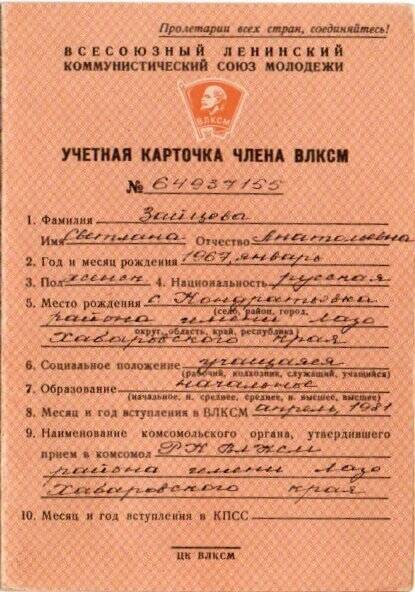 Пролетарии всех стран, соединяйтесь!
ВСЕСОЮЗНЫЙ ЛЕНИНСКИЙ
КОММУНИСТИЧЕСКИЙ СОЮЗ МОЛОДЕЖИ
ВЛКСМ
УЧЕТНАЯ КАРТОЧКА ЧЛЕНА ВЛКСМ
№ 64937155
1. Фамилия Зайцева
Имя Светлана Отчество Анатольевна
2. Год и месяц рождения 1967, январь
3. Пол женск 4. Национальность русская
5. Место рождения с. Кондратьевка
(село, район, город,
района имени Лазо
округ, область, край, республика)
Хабаровского края
6. Социальное положение учащаяся
(рабочий, колхозник, служащий, учащийся)
7. Образование начальное
(начальное, н. среднее, среднее, н. высшее, высшее)
8. Месяц и год вступления в ВЛКСМ апрель, 1981
9. Наименование комсомольского органа, утвердившего
прием в комсомол РК ВЛКСМ
района имени Лазо
Хабаровского края
10. Месяц и год вступления в КПСС
ЦК ВЛКСМ